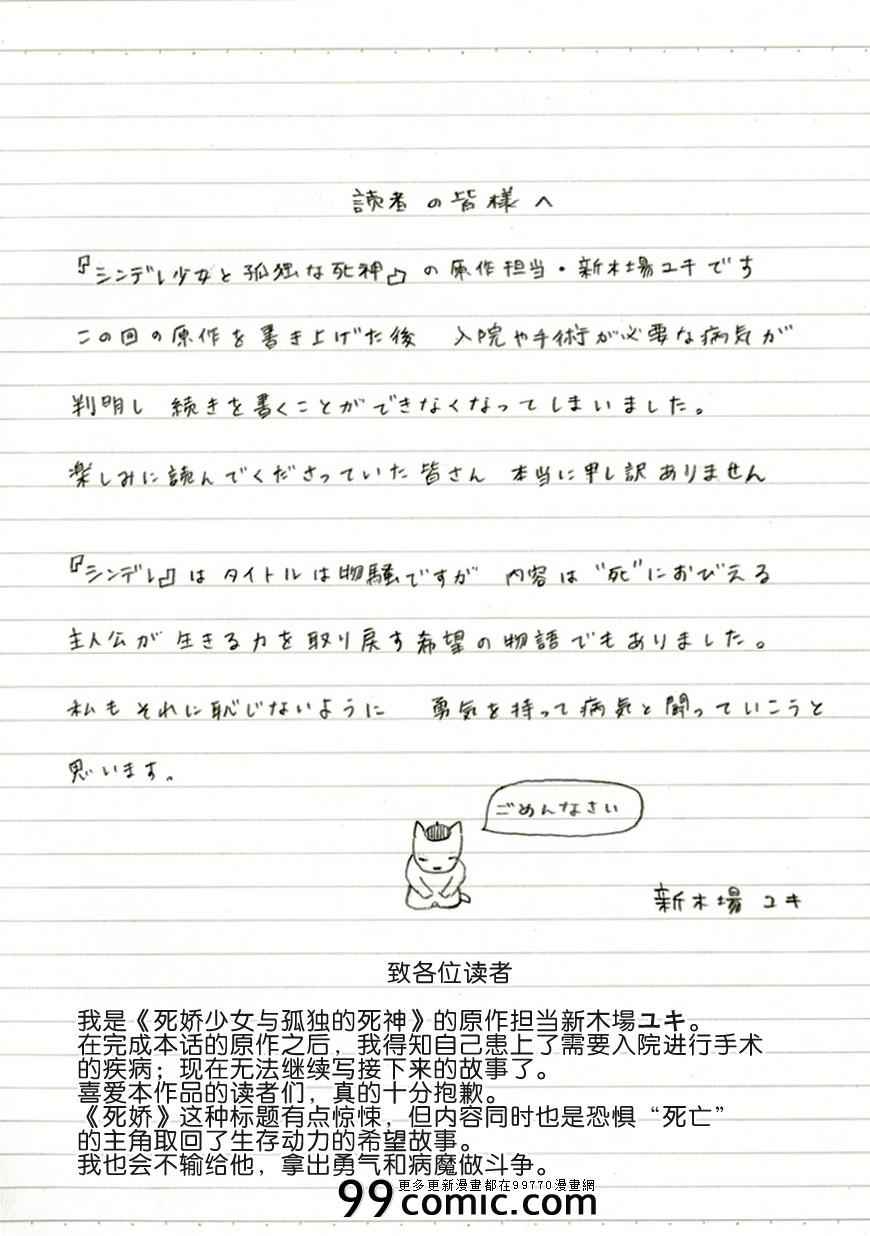 読者の皆様へ
『シンデレ少女と孤独な死神』の原作担当・新木場ユキです
この回の原作を書き上げた後 入院や手術が必要な病気が
判明し 続きを書くことができなくなってしまいました。
楽しみに読んでくださっていた皆さん 本当に申し訳ありません
『シンデレ』はタイトルは物騒ですが 内容は“死”におびえる
主人公が生きる力を取り戻す希望の物語でもありました。
私もそれに恥じないように 勇気を持って病気と闘っていこうと
思います。
ごめんなさい
新木場ユキ
致各位读者
我是《死娇少女与孤独的死神》的原作担当新木場ユキ。
在完成本话的原作之后，我得知自己患上了需要入院进行手术
的疾病；现在无法继续写接下来的故事了。
喜爱本作品的读者们，真的十分抱歉。
《死娇》这种标题有点惊悚，但内容同时也是恐惧“死亡”
的主角取回了生存动力的希望故事。
我也会不输给他，拿出勇气和病魔做斗争。
更多更新漫畫都在99770漫畫網
99comic.com